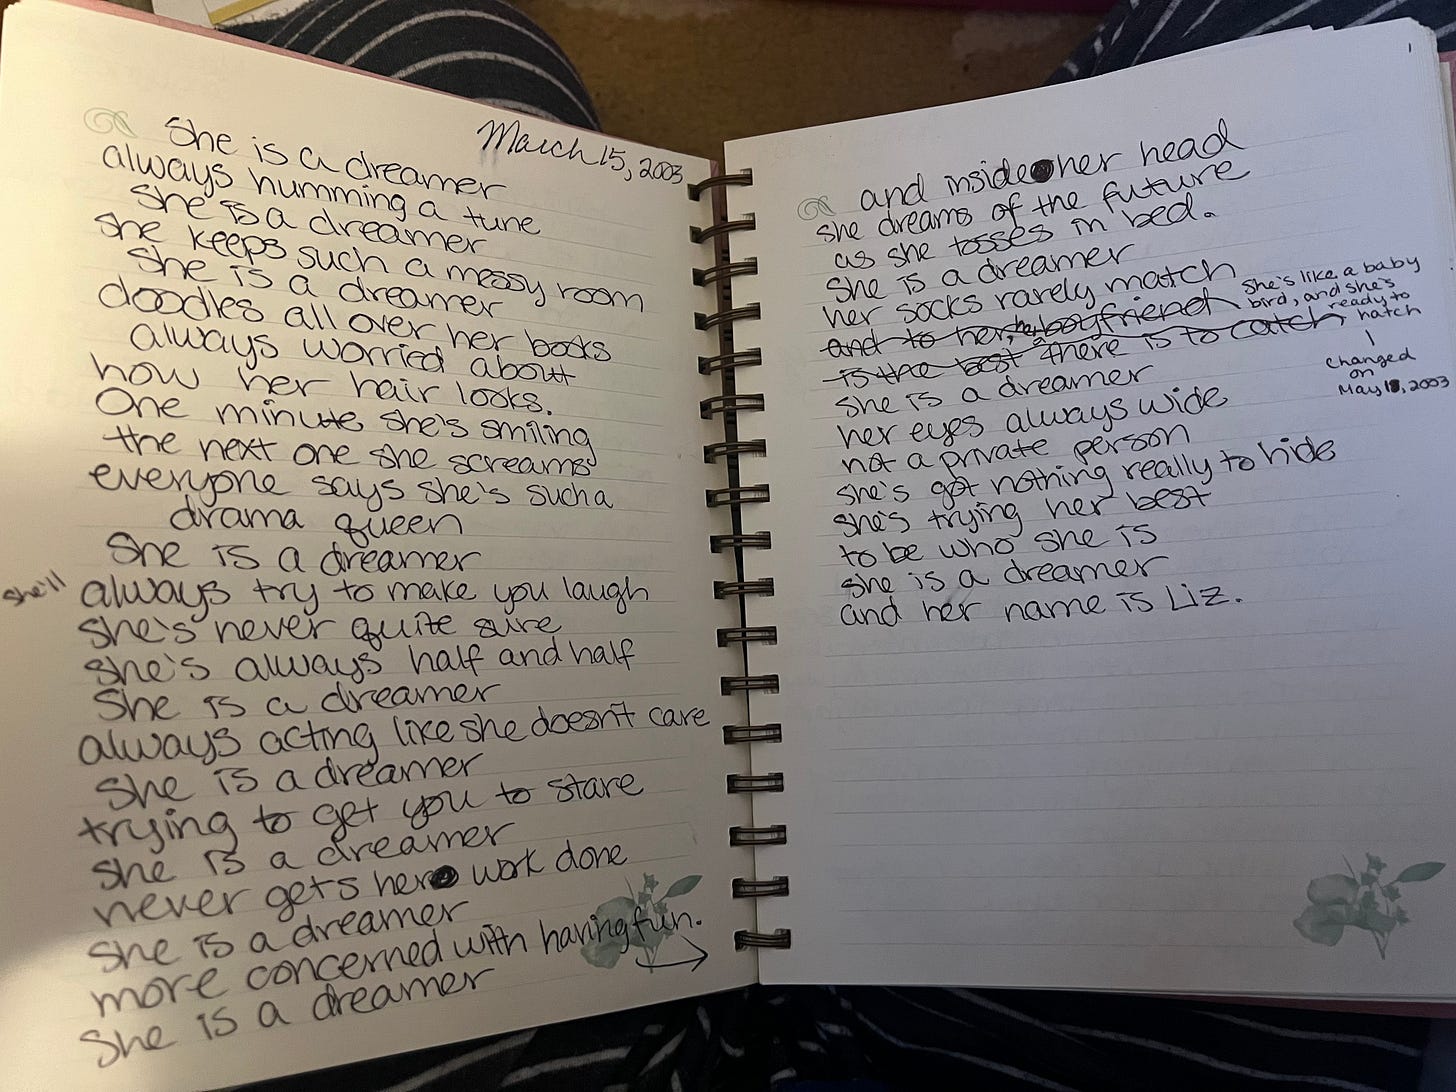 March 15, 2003
She is a dreamer
always humming a tune
She is a dreamer
She keeps such a messy room
She is a dreamer
doodles all over her books
always worried about
how her hair looks.
One minute she's smiling
the next one she screams
everyone says she's such a
drama queen
She is a dreamer
she'll always try to make you laugh
she's never quite sure
she's always half and half
She is a dreamer
always acting like she doesn't care
She is a dreamer
trying to get you to stare
She is a dreamer
never gets her work done
She is a dreamer
more concerned with having fun.
She is a dreamer
and inside her head
she dreams of the future
as she tosses in bed.
She is a dreamer
her socks rarely match
and to her, her boyfriend
is the best there is to catch
She's like a baby
bird, and she's
ready to
hatch
changed
on
May 18, 2003
she is a dreamer
her eyes always wide
not a private person
she's got nothing really to hide
she's trying her best
to be who she is
she is a dreamer
and her name is Liz.